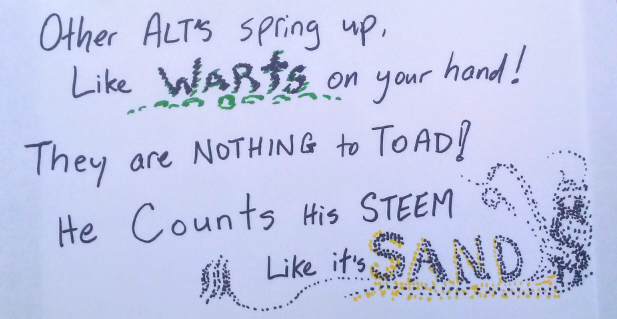 Other ALT'S spring up,
Like WARtS on your hand!
They are NOTHING to TOAD!
He Counts His STEEM
Like it's SAND